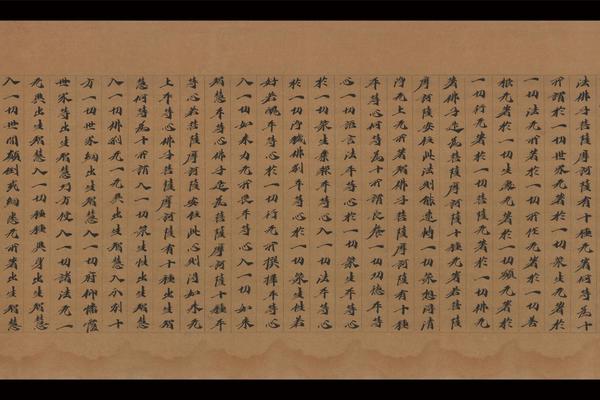 法佛子菩薩摩訶薩有十種无著何等為十
所謂於一切世界无著於一切眾生无著於
一切法无所著於一切所作无著於一切善
根无著於一切生處无著於一切願无著於
一切行无著於一切菩薩无著於一切佛无
著佛子是為菩薩摩訶薩十種无著若菩薩
摩訶薩安住此法則能速轉一切眾想得清
淨无上无所著智佛子菩薩摩訶薩有十種
平等心何等為十所謂長養一切功德平等
心一切語言法平等心於一切眾生平等心
於一切眾生業報平等心入一切法平等心
於一切淨穢佛剎平等心於一切眾生性若
好若醜平等心於一切行无所撰擇平等心
入一切如來力无所畏平等心入一切如來
智慧平等心佛子是為菩薩摩訶薩十種平
等心若菩薩摩訶薩安住此心則得如來无
上平等心佛子菩薩摩訶薩有十種出生智
慧何等為十所謂入一切眾生性出生智慧
入一切佛剎无一无異出生智慧入分別十
方一切世界網出生智慧入一切俯仰幡覆
世界等出生智慧巧方便入一切諸法无一
无異出生智慧入一切種種異身出生智慧
入一切世間顛倒惑網悉无所著出生智慧